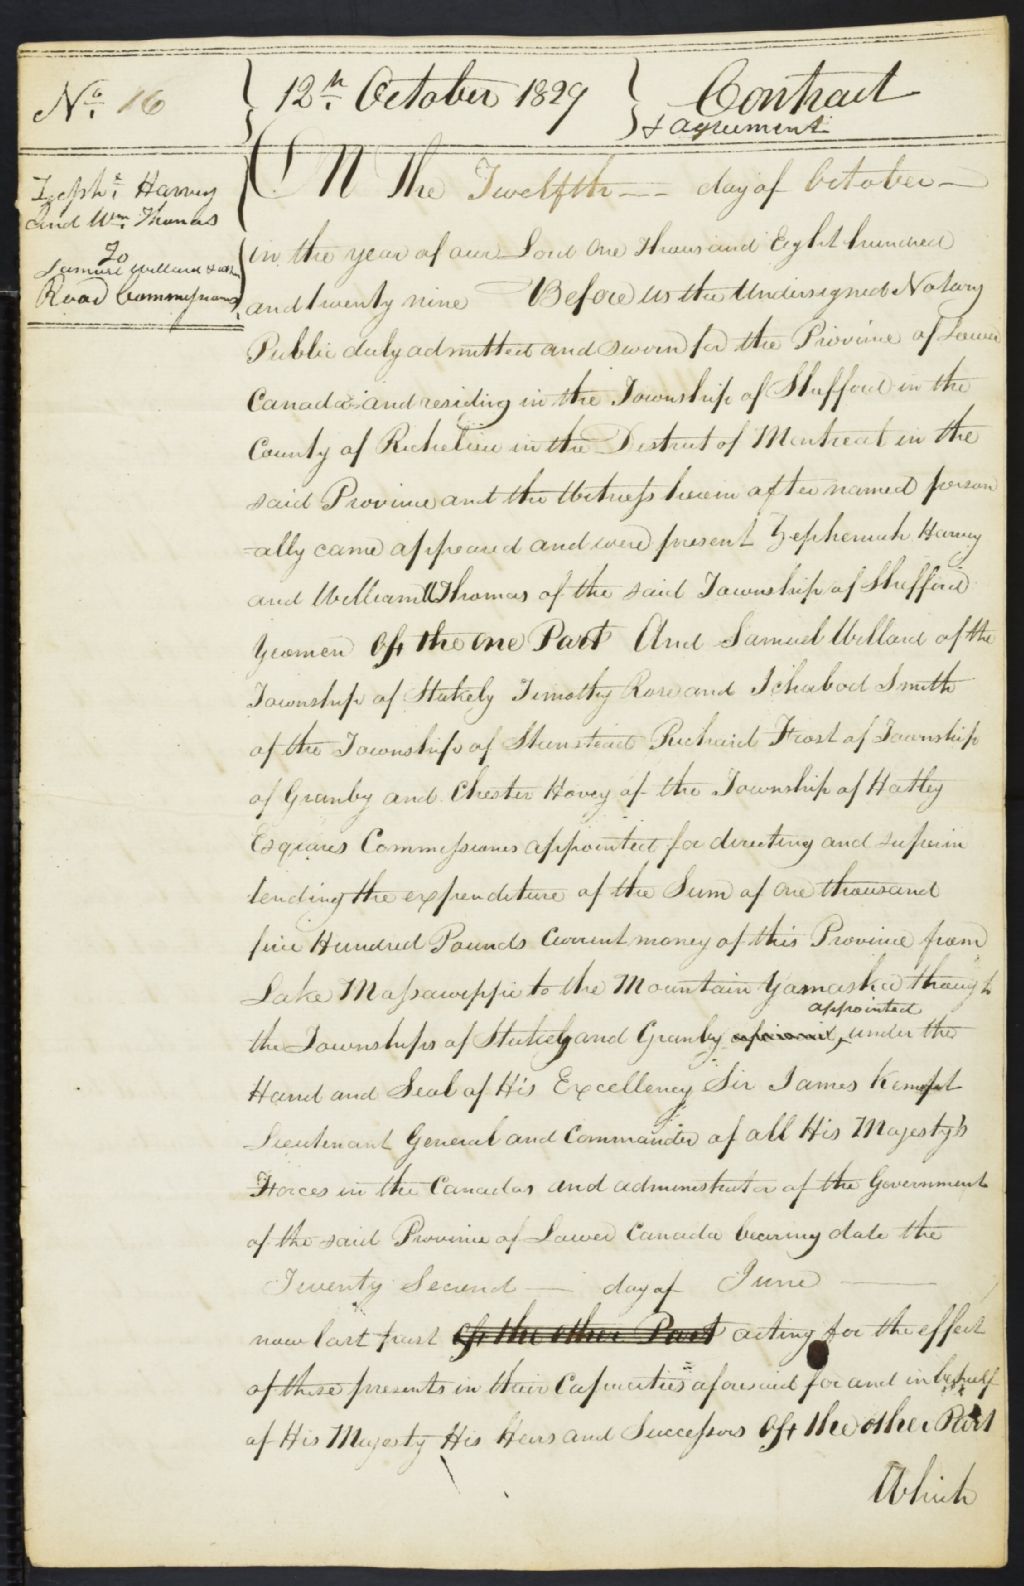 No. 16
12th. October 1829
Contract
& agreement
Zeph.h Harvey
and Wm. Thomas
To
Samuel Willard & others
Road Commissioners
ON The Twelfth — day of October —
in the year of our Lord One Thousand Eight hundred
and twenty nine Before us the Undersigned Notary
Public duly admitted and sworn for the Province of Lower
Canada and residing in the Township of Shefford in the
County of Richelieu in the District of Montreal in the
said Province and the Witness herein after named person
-ally came appeared and were present Zepheniah Harvey
and William Thomas of the said Township of Shefford
Yeomen Of the One Part And Samuel Willard of the
Township of Stukely Timothy Rose and Ichabod Smith
of the Township of Stanstead Richard Frost of Township
of Granby and Chester Hovey of the Township of Hatley
Esquires Commissioners appointed for directing and superin
tending the expenditure of the Sum of One thousand
five Hundred Pounds Current money of this Province from
Lake Massawippi to the Mountain Yamaska through
appointed
the Townships of Stukely and Granby under the
Hand and Seal of His Excellency Sir James Kempt
Lieutenant General and Commander of all His Majesty's
Forces in the Canadas and administrator of the Government
of the said Province of Lower Canada bearing date the
Twenty Second — day of June —
now last past Of the other Part acting for the effect
of these presents in their Capacities aforesaid for and in behalf
of His Majesty His Heirs and Successors Of the other Part
Which